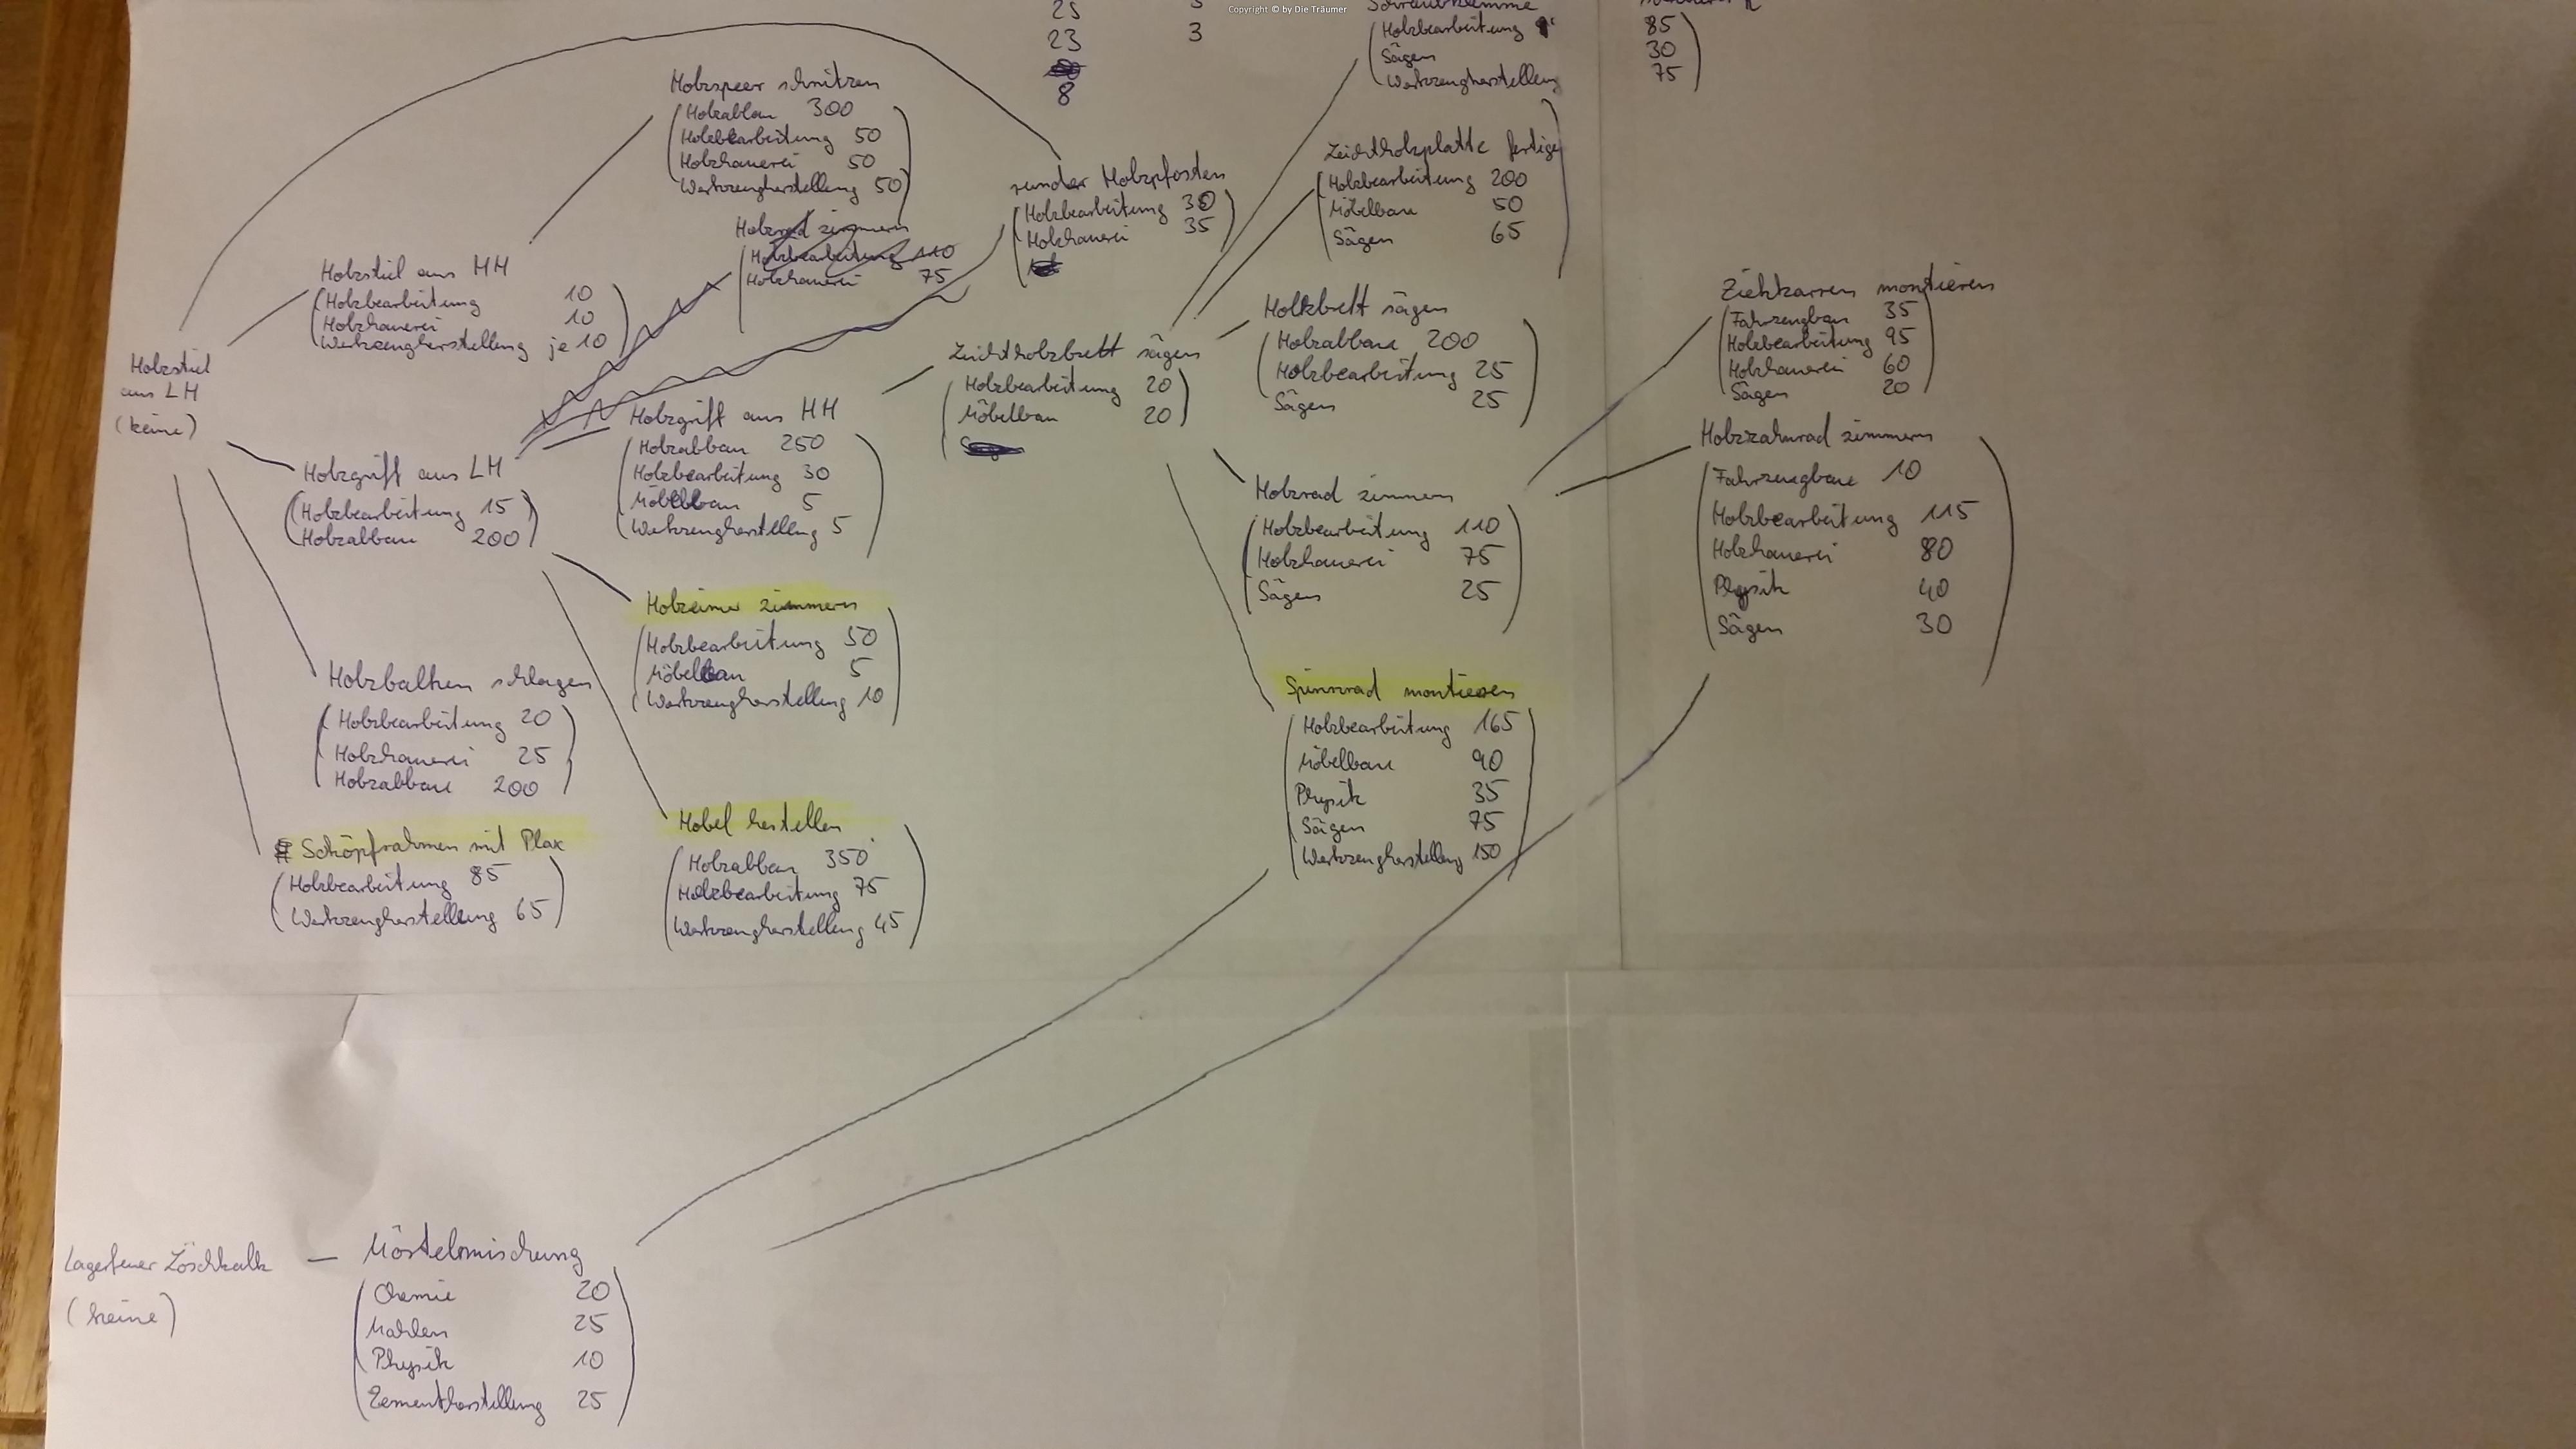 Copyright © by Die Träumer
25
23
8
3
3
Schraubklemme
Holzbearbeitung
Sägen
Werkzeugherstellung
85
30
75
Holzspeer schnitzen
Holzabbau 300
Holzbearbeitung 50
Holzhauerei 50
Werkzeugherstellung 50
Holzrad zimmern
Holzbearbeitung 110
Holzhauerei 75
runder Holzpfosten
Holzbearbeitung 30
Holzhauerei 35
Leichtholzplatte fertigen
Holzbearbeitung 200
Möbelbau 50
Sägen 65
Holzstiel aus HH
Holzbearbeitung 10
Holzhauerei 10
Werkzeugherstellung je 10
Holzstiel
aus LH
(keine)
Leichtholzbrett sägen
Holzbearbeitung 20
Möbelbau 20
Holzbrett sägen
Holzabbau 200
Holzbearbeitung 25
Sägen 25
Ziehkarren montieren
Fahrzeugbau 35
Holzbearbeitung 95
Holzhauerei 60
Sägen 20
Holzgriff aus LH
Holzbearbeitung 15
Holzabbau 200
Holzgriff aus HH
Holzabbau 250
Holzbearbeitung 30
Möbelbau 5
Werkzeugherstellung 5
Holzrad zimmern
Holzbearbeitung 110
Holzhauerei 75
Sägen 25
Holzzahnrad zimmern
Fahrzeugbau 10
Holzbearbeitung 115
Holzhauerei 80
Physik 40
Sägen 30
Holzeimer zimmern
Holzbearbeitung 50
Möbelbau 5
Werkzeugherstellung 10
Holzbalken schlagen
Holzbearbeitung 20
Holzhauerei 25
Holzabbau 200
Spinnrad montieren
Holzbearbeitung 165
Möbelbau 90
Physik 35
Sägen 75
Werkzeugherstellung 150
Schöpfrahmen mit Plax
Holzbearbeitung 85
Werkzeugherstellung 65
Hobel herstellen
Holzabbau 350
Holzbearbeitung 75
Werkzeugherstellung 45
Lagerfeuer Löschkalk
(keine)
Mörtelmischung
Chemie 20
Mahlen 25
Physik 10
Zementherstellung 25